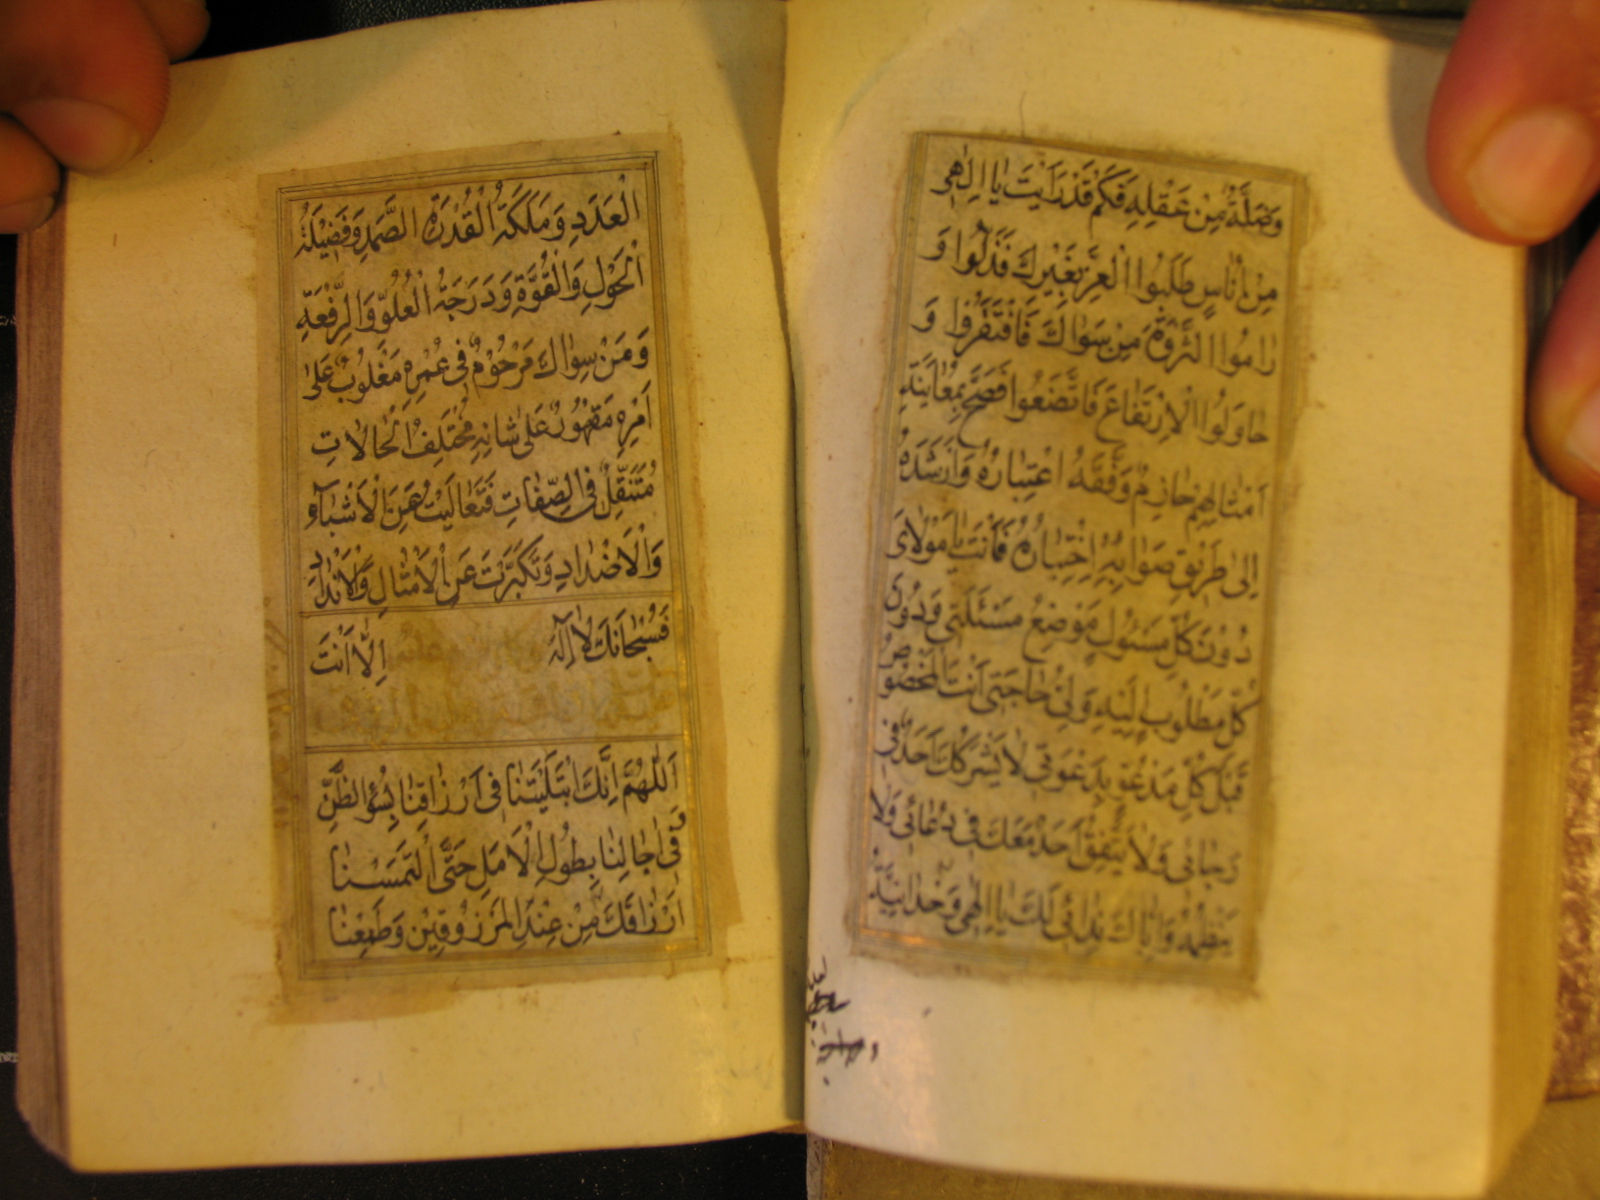 وَضَلَّةٌ مِنْ عَقْلِهِ فَكَمْ قَدْ رَاَيْتَ يٰا اِلٰهى
مِنْ اُنٰاسٍ طَلَبُوا الْعِزَّ بِغَيْرِكَ فَذَلُّوا وَ
رٰامُوا الثَّرْوَةَ مِنْ سِوٰاكَ فَافْتَقَرُوا وَ
حٰاوَلُوا الْاِرْتِفٰاعَ فَاتَّضَعُوا فَصَحَّ بِمُعٰايَنَةِ
اَمْثٰالِهِمْ حٰازِمٌ وَفَّقَهُ اعْتِبٰارُهُ وَاَرْشَدَهُ
اِلىٰ طَرِيْقِ صَوٰابِهِ اِخْتِيٰارُهُ فَاَنْتَ يٰا مَوْلٰاىَ
دُوْنَ كُلِّ مَسْئُولٍ مَوْضِعُ مَسْئَلَتى وَدُوْنَ
كُلِّ مَطْلُوْبٍ اِلَيْهِ وَلِىُّ حٰاجَتى اَنْتَ الْمَخْصُوْصُ
قَبْلَ كُلِّ مَدْعُوٍّ بِدَعْوَتى لٰا يَشْرَكُكَ اَحَدٌ فى
رَجٰائى وَلٰا يَتَّفِقُ اَحَدٌ مَعَكَ فى دُعٰائى وَلٰا
يَنْظِمُهُ وَاِيّٰاكَ نِدٰائى لَكَ يٰا اِلٰهى وَحْدٰانِيَّةُ
الْعَدَدِ وَمَلَكَةُ الْقُدْرَةِ الصَّمَدِ وَفَضِيْلَةُ
الْحَوْلِ وَالْقُوَّةِ وَدَرَجَةُ الْعُلُوِّ وَالرِّفْعَةِ
وَمَنْ سِوٰاكَ مَرْحُوْمٌ فى عُمْرِهِ مَغْلُوْبٌ عَلىٰ
اَمْرِهِ مَقْهُوْرٌ عَلىٰ شَانِهِ مُخْتَلِفُ الْحٰالٰاتِ
مُتَنَقِّلٌ فِى الصِّفٰاتِ فَتَعٰالَيْتَ عَنِ الْاَشْبٰاهِ
وَالْاَضْدٰادِ وَتَكَبَّرْتَ عَنِ الْاَمْثٰالِ وَالْاَنْدٰادِ
فَسُبْحٰانَكَ لٰا اِلٰهَ اِلّٰا اَنْتَ
اَللّٰهُمَّ اِنَّكَ ابْتَلَيْتَنٰا فى اَرْزٰاقِنٰا بِسُوْءِ الظَّنِّ
وَفى اٰجٰالِنٰا بِطُولِ الْاَمَلِ حَتَّى الْتَمَسْنٰا
اَرْزٰاقَكَ مِنْ عِنْدِ الْمَرْزُوْقيْنَ وَطَمِعْنٰا